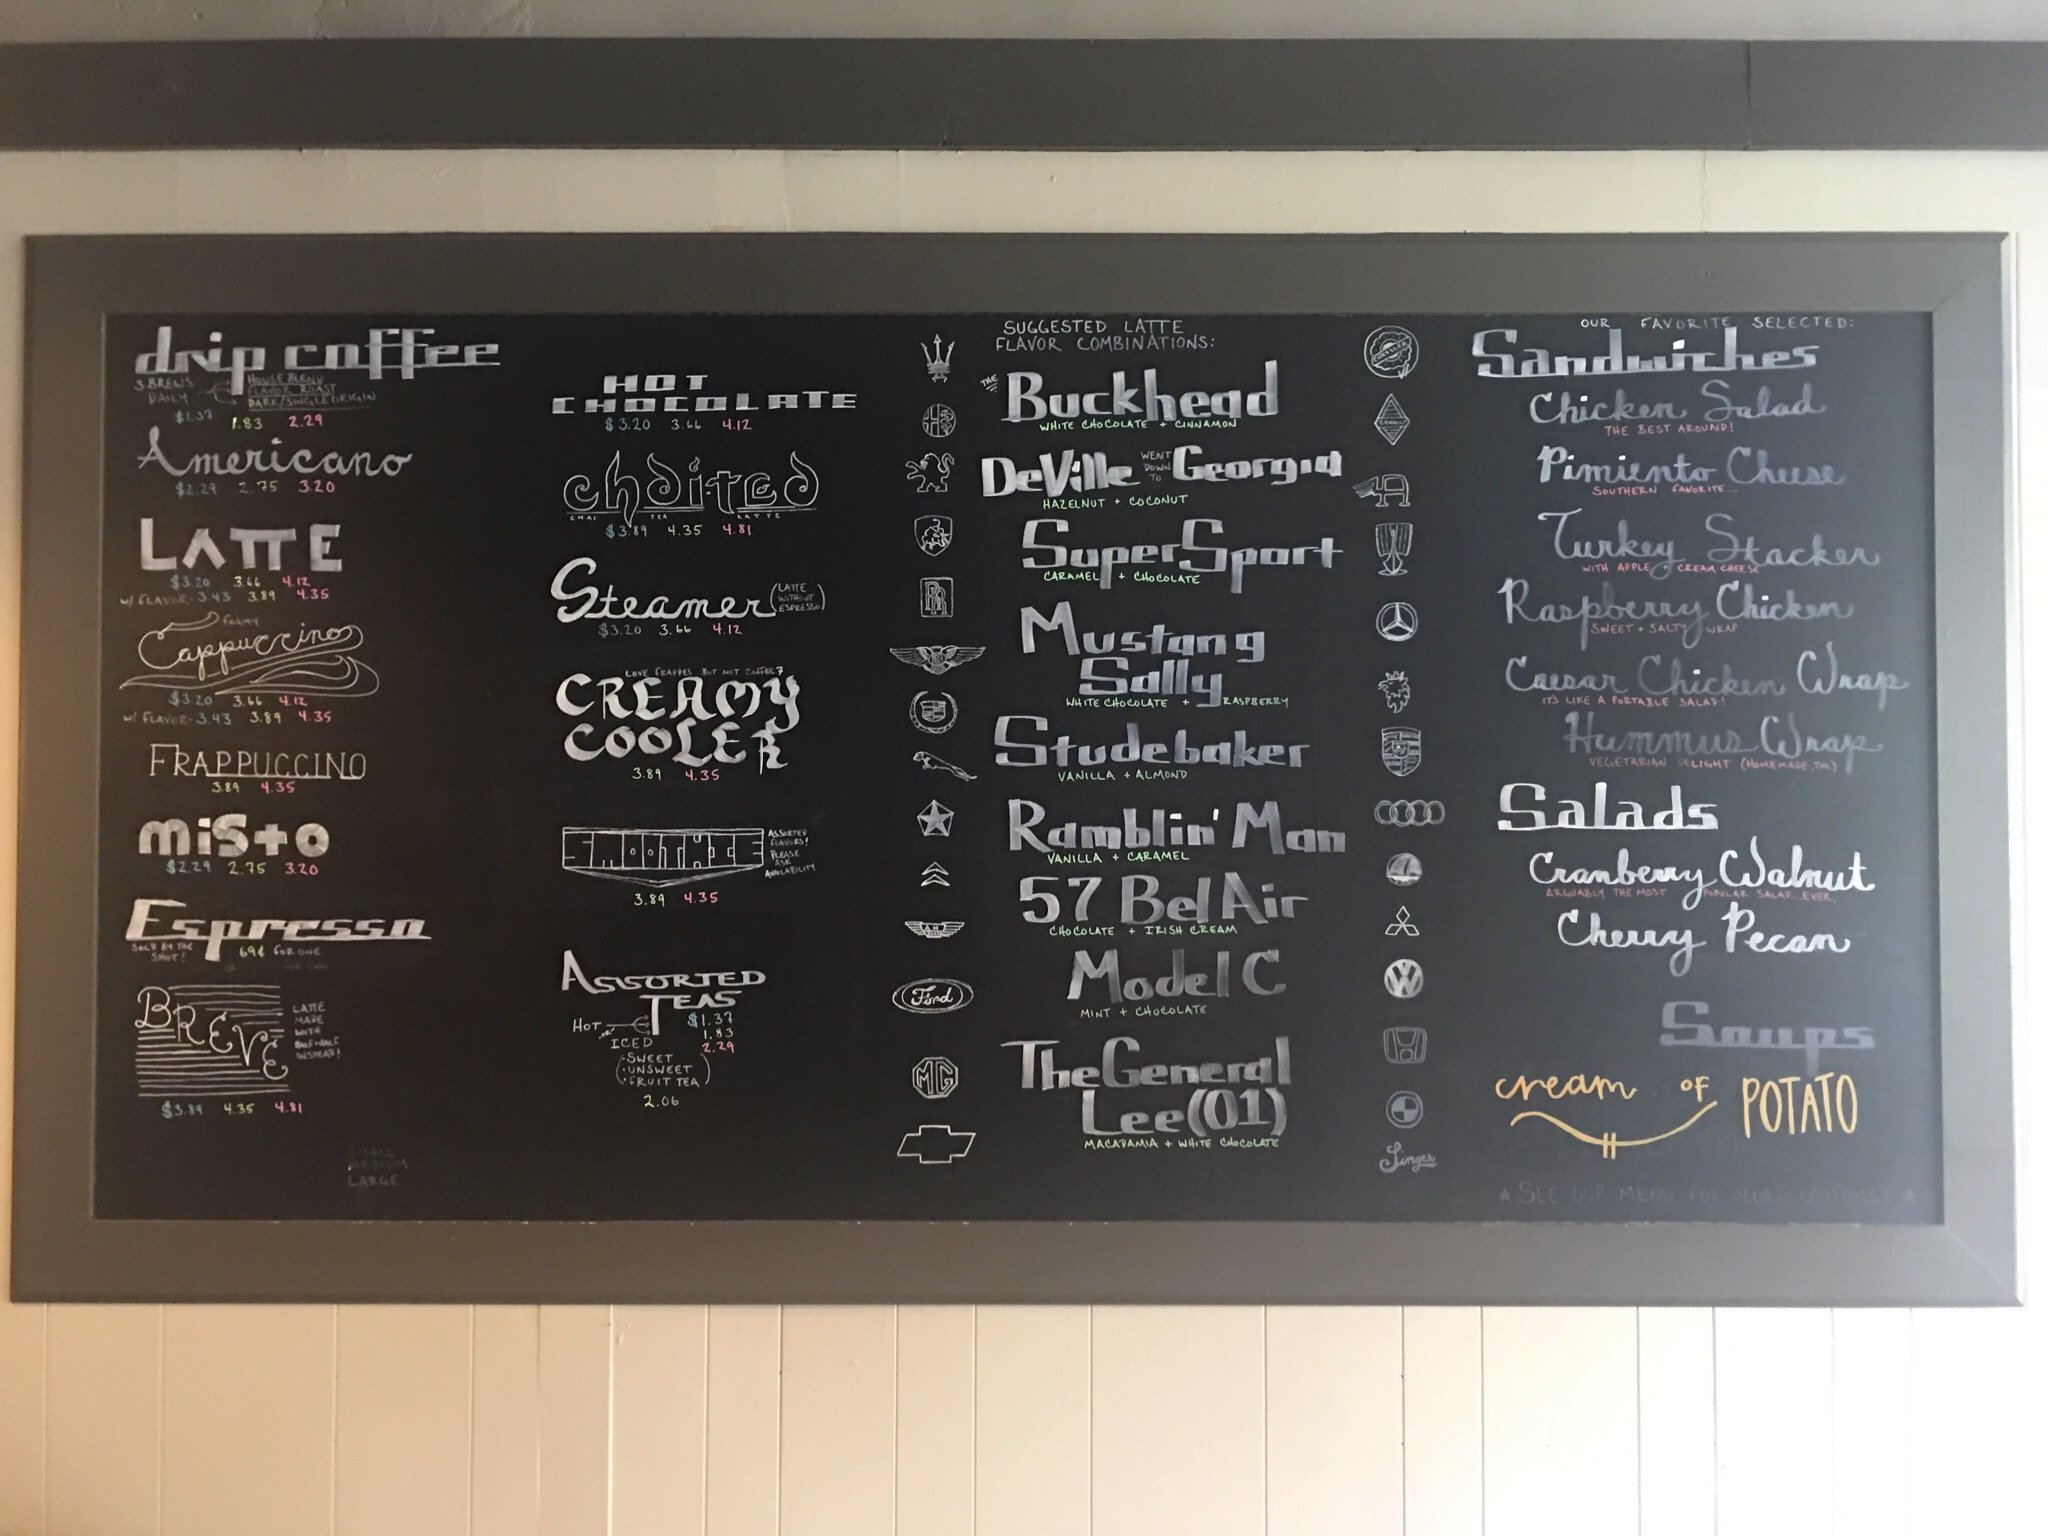 drip coffee
3 BREWS DAILY
HOUSE BLEND
FLAVOR ROAST
DARK/SINGLE ORIGIN
$1.37 1.83 2.29
Americano
$2.29 2.75 3.20
LATTE
$3.20 3.66 4.12
W/ FLAVOR - 3.43 3.89 4.35
FOAMY
Cappuccino
$3.20 3.66 4.12
W/ FLAVOR - 3.43 3.89 4.35
FRAPPUCCINO
3.89 4.35
misto
$2.29 2.75 3.20
Espresso
SOLD BY THE SHOT!
69¢ FOR ONE
FOR TWO
BREVE
LATTE
MADE
WITH
HALF+HALF
INSTEAD!
$3.89 4.35 4.81
SMALL
MEDIUM
LARGE
HOT
CHOCOLATE
$3.20 3.66 4.12
chaited
CHAI TEA LATTE
$3.89 4.35 4.81
Steamer (LATTE WITHOUT ESPRESSO)
$3.20 3.66 4.12
LOVE FRAPPES BUT NOT COFFEE?
CREAMY
COOLER
3.89 4.35
ASSORTED
FLAVORS!
PLEASE
ASK
AVAILABILITY
3.89 4.35
ASSORTED
TEAS
HOT
$1.37
1.83
2.29
ICED
(·SWEET
·UNSWEET
·FRUIT TEA)
2.06
SUGGESTED LATTE
FLAVOR COMBINATIONS:
THE Buckhead
WHITE CHOCOLATE + CINNAMON
DeVille WENT DOWN TO Georgia
HAZELNUT + COCONUT
Super Sport
CARAMEL + CHOCOLATE
Mustang
Sally
WHITE CHOCOLATE + RASPBERRY
Studebaker
VANILLA + ALMOND
Ramblin' Man
VANILLA + CARAMEL
57 Bel Air
CHOCOLATE + IRISH CREAM
Model C
MINT + CHOCOLATE
The General
Lee (01)
MACADAMIA + WHITE CHOCOLATE
RR
Ford
MG
CHRYSLER
VW
Singer
OUR FAVORITE SELECTED:
Sandwiches
Chicken Salad
THE BEST AROUND!
Pimiento Cheese
SOUTHERN FAVORITE...
Turkey Stacker
WITH APPLE + CREAM CHEESE
Raspberry Chicken
SWEET + SALTY WRAP
Caesar Chicken Wrap
IT'S LIKE A PORTABLE SALAD!
Hummus Wrap
VEGETARIAN DELIGHT (HOMEMADE, TOO)
Salads
Cranberry Walnut
ARGUABLY THE MOST POPULAR SALAD...EVER.
Cherry Pecan
Soups
cream OF POTATO
★ SEE OUR MENU FOR MORE OPTIONS! ★